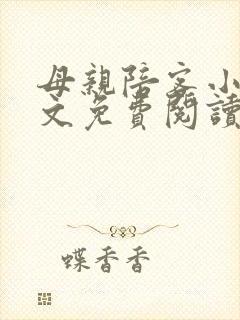 母親陪客小
文免費閱讀
蝶香香